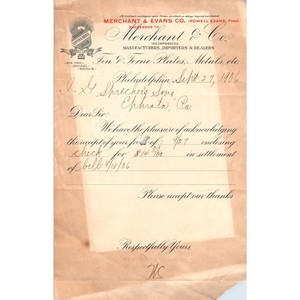 MERCHANT & EVANS CO. (POWELL EVANS, Prest.
SUCCESSOR TO
Merchant & Co.
INCORPORATED
MANUFACTURERS, IMPORTERS & DEALERS
Tin & Terne Plates, Metals, etc.
Philadelphia, Sept 29, 1906
Sprechers Sons
Ephrata, Pa
Dear Sir:
We have the pleasure of acknowledging
the receipt of your of 9/27 enclosing
check for in settlement
of bill 9/10/06
Please accept our thanks
Respectfully Yours,